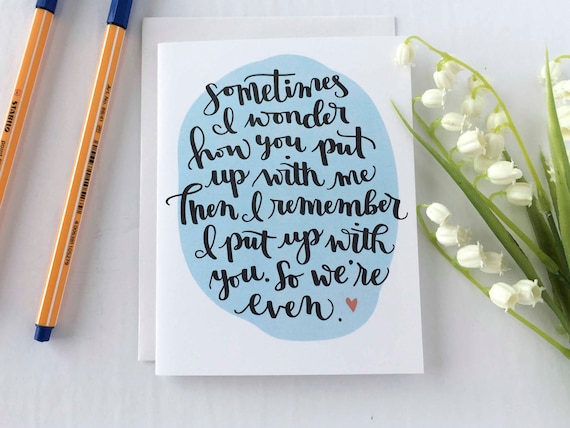 Sometimes
I wonder
how you put
up with me
Then I remember
I put up with
you. So we're
even.
STABILO